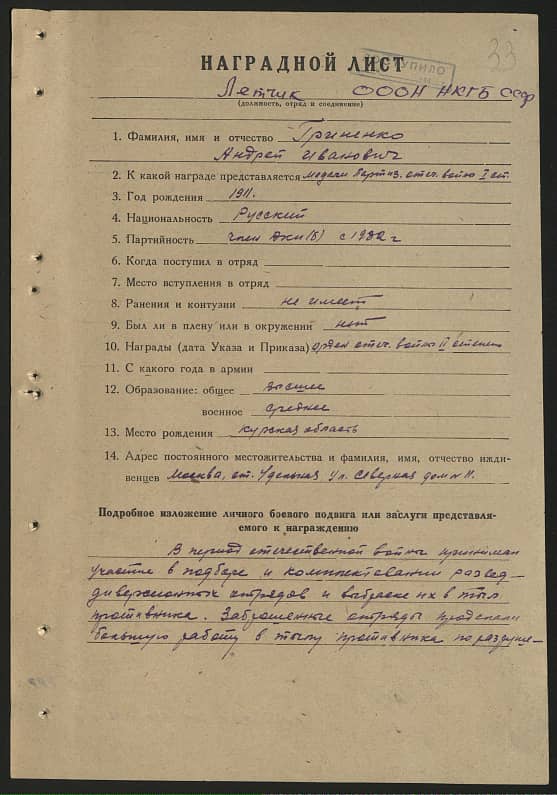 33
НАГРАДНОЙ ЛИСТ
Летчик ОООН НКГБ СССР
(должность, отряд и соединение)
1. Фамилия, имя и отчество Гриненко
Андрей Иванович
2. К какой награде представляется медали Партиз. отеч. войны I ст.
3. Год рождения 1911.
4. Национальность Русский
5. Партийность член ВКП(б) с 1932 г
6. Когда поступил в отряд
7. Место вступления в отряд
8. Ранения и контузии не имеет
9. Был ли в плену или в окружении нет
10. Награды (дата Указа и Приказа) орден отеч. войны II степени
11. С какого года в армии
12. Образование: общее высшее
военное среднее
13. Место рождения Курская область
14. Адрес постоянного местожительства и фамилия, имя, отчество ижди-
венцев Москва, ст. Удельная ул. Северная дом № 11.
Подробное изложение личного боевого подвига или заслуги представля-
емого к награждению
В период отечественной войны принимал
участие в подборе и комплектовании развед-
диверсионных отрядов и выброске их в тыл
противника. Заброшенные отряды проделали
большую работу в тылу противника по разруше-